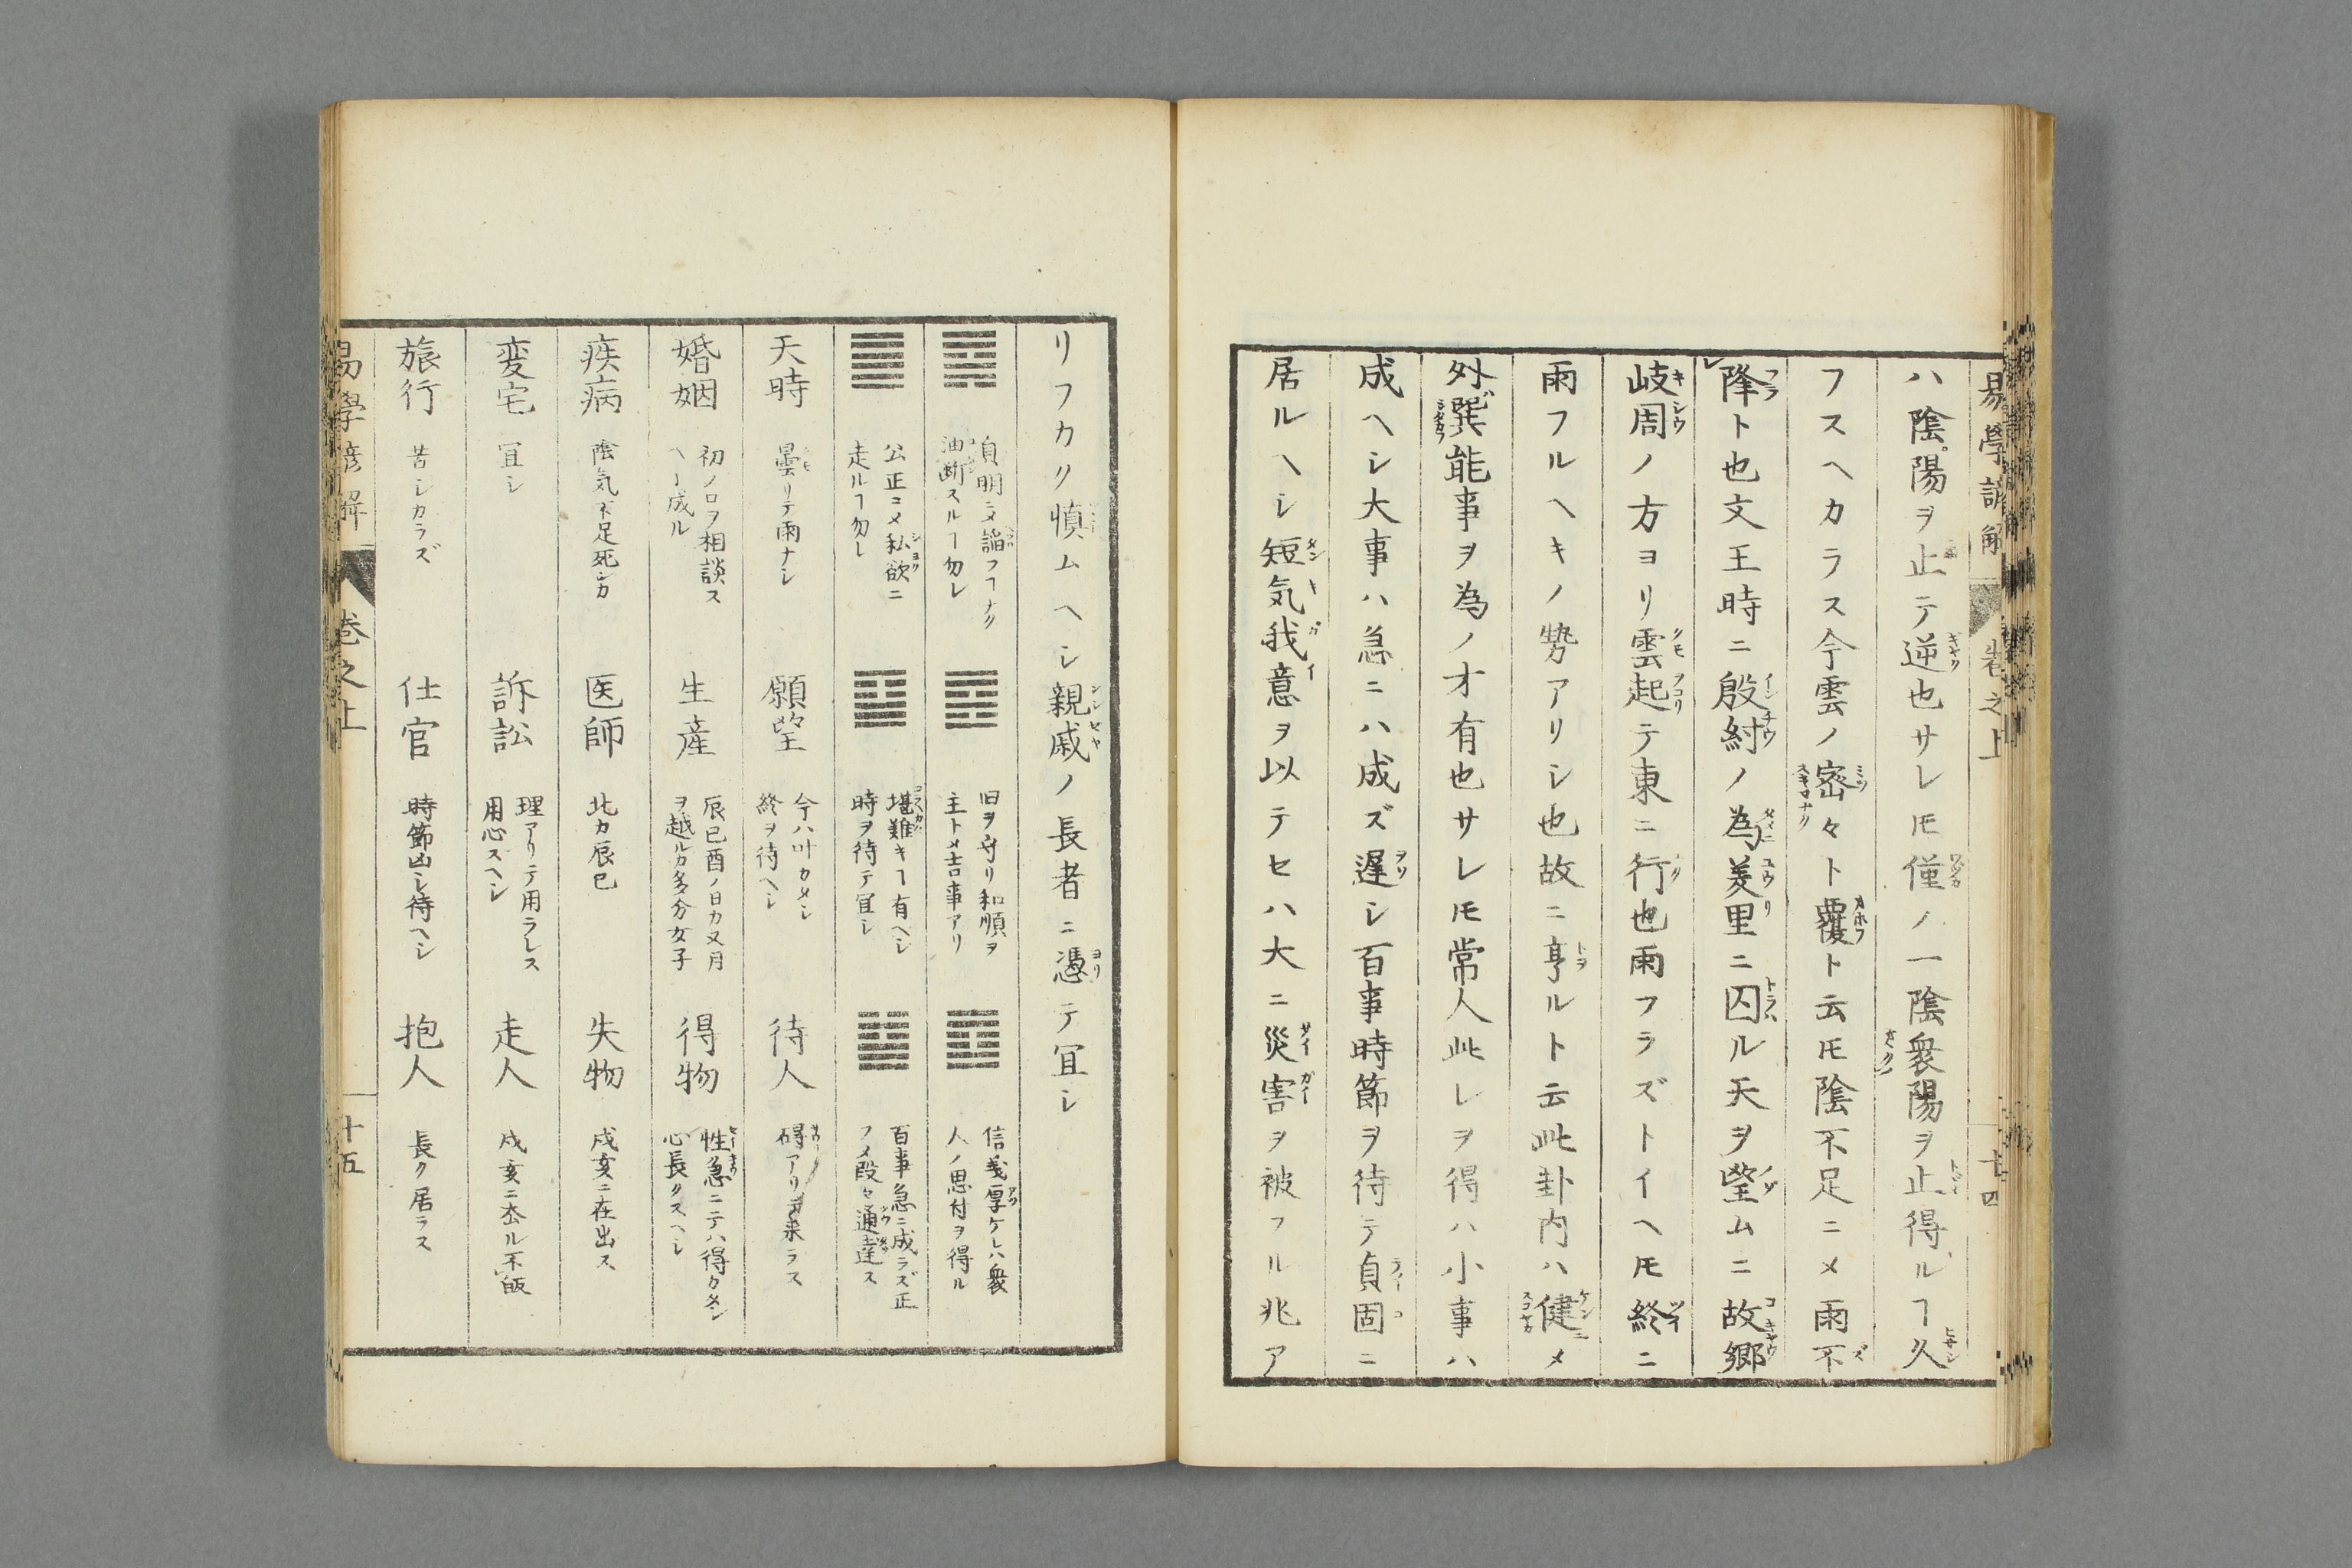 易學諺解 巻之上 十四
ハ陰陽ヲ止テ逆也サレ𪜈僅ノ一陰衆陽ヲ止得ルヿ久
フスヘカラス今雲ノ密々ト覆ト云𪜈陰不足ニメ雨不
降ト也文王時ニ殷紂ノ為羑里ニ囚ル天ヲ望ムニ故郷
岐周ノ方ヨリ雲起テ東ニ行也雨フラズトイヘ𪜈終ニ
雨フルヘキノ勢アリシ也故ニ亨ルト云此卦内ハ健メ
外巽能事ヲ為ノ才有也サレ𪜈常人此レヲ得ハ小事ハ
成ヘシ大事ハ急ニハ成ズ遅シ百事時節ヲ待テ貞固ニ
居ルヘシ短気我意ヲ以テセハ大ニ災害ヲ被フル兆ア
リフカク慎ムヘシ親戚ノ長者ニ憑テ冝シ
䷤ 貞明ニメ謟フヿナク
油断スルヿ勿レ
䷼ 旧ヲ守リ和順ヲ
主トメ吉事アリ
信義厚ケレハ衆
人ノ思付ヲ得ル
䷀ 公正ニメ私欲ニ
走ルヿ勿レ
堪難キヿ有ヘシ
時ヲ待テ冝シ
百事急ニ成ラズ正
フメ段々通達ス
天時 曇リテ雨ナシ
願望 今ハ叶カメシ
終ヲ待ヘシ
待人 碍アリテ来ラス
婚姻 初ノロヲ相談ス
ヘー成ル
生産 辰巳酉ノ日カ又月
ヲ越ルカ多分女子
得物 性急ニテハ得カメシ
心長クスヘシ
疾病 陰気不足死シカ
医師 北カ辰巳
失物 戌亥ニ在出ス
変宅 冝シ
訴訟 理アリテ用ラレス
用心スヘシ
走人 戌亥ニ去ル不皈
旅行 苦シカラズ
仕官 時節凶シ待ヘシ
抱人 長ク居ラス
易學諺解 巻之上 十五